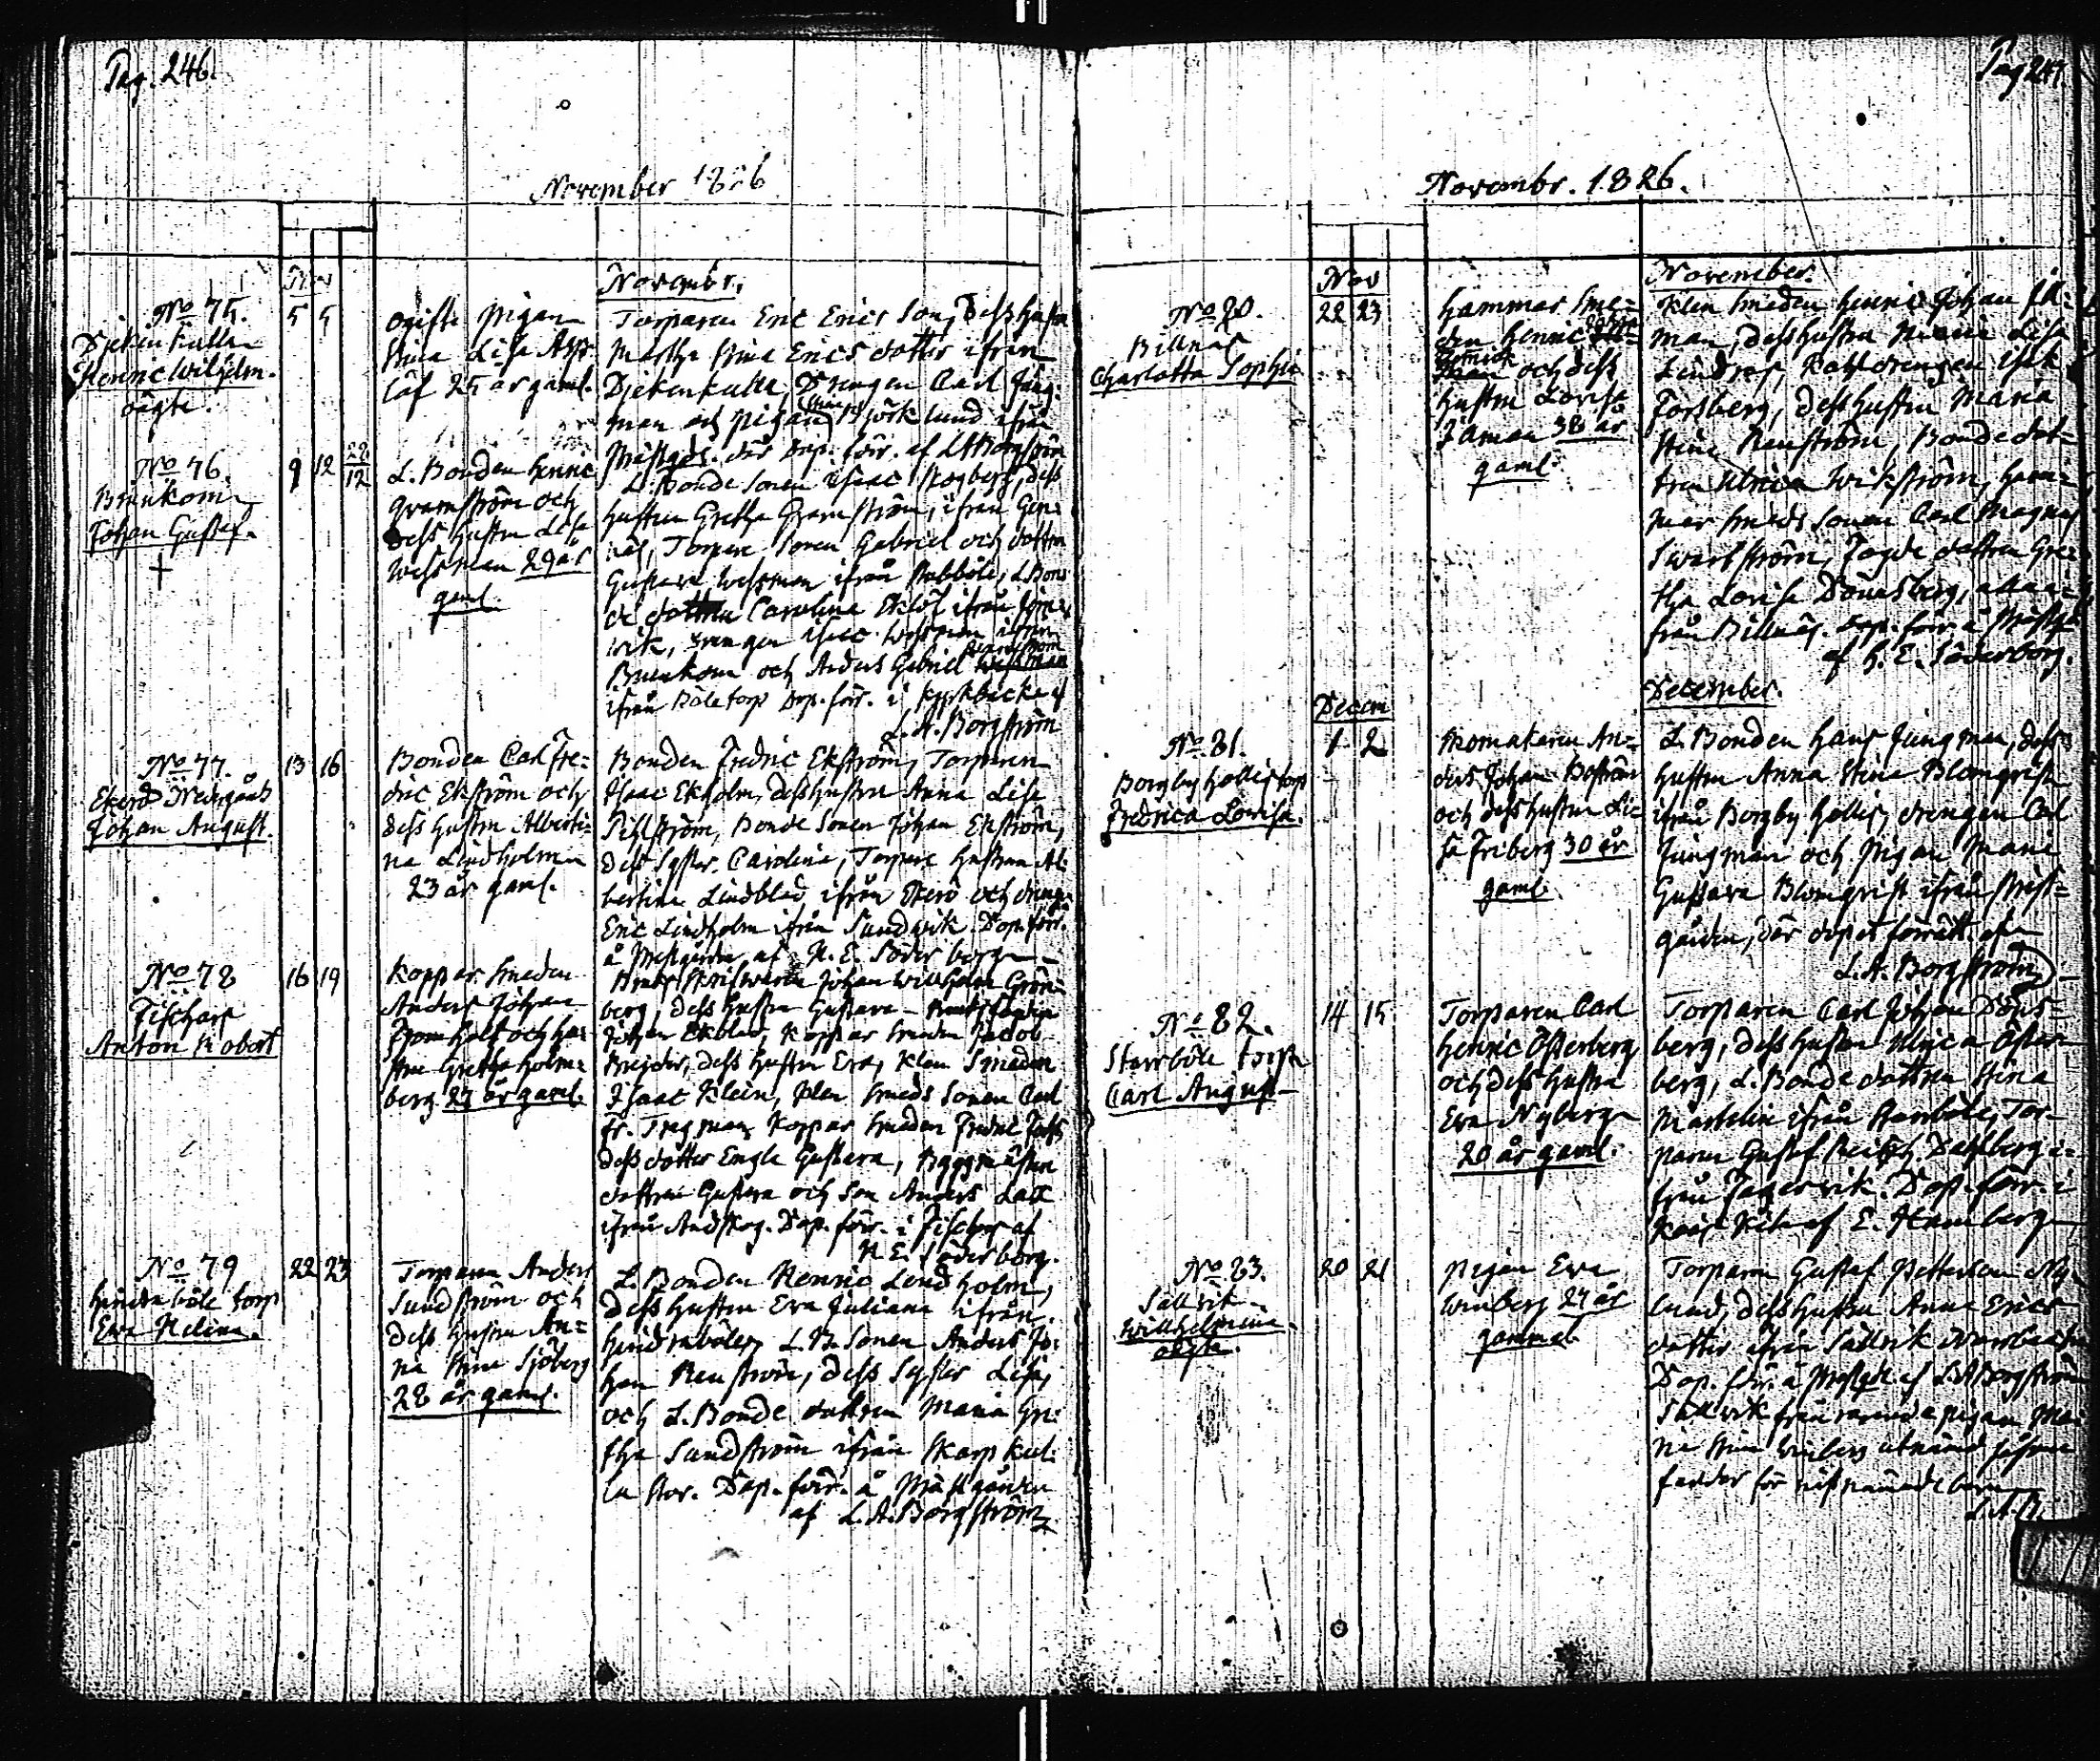 Pag. 246.
November 1826
Nov
Novembr.
No 75.
Djekinkulla
Henric Wilhelm.
oägte.
5 5
ogifte pigan
Stina Lisa Asp-
löf 25 år gaml.
Torparen Eric Ericsson, dess hustru
Martha Stina Ericsdotter ifrån
Djekinkulla, Drengen Carl Jung-
man och pigan Stina Björklund ifrån
Prästgd. där dop. förr. af LABorgström
No 76.
Brinkom
Johan Gustaf.
+
9 12 22/12
L. Bonden Henric
Granström och
dess hustru Lisa
Wessman 29 år
gaml.
L. Bonde sonen Isaac Skogberg, dess
hustru Gretha Granström, ifrån
Torpare sonen Gabriel och dottren
Gustava Wessman ifrån Stabböle, L. Bon-
de dottren Carolina Eklöf ifrån
wik, drengen Isaac Wessman ifrån
Brinkom och Anders Gabriel Wessman
ifrån Böletorp Dop. förr. i af
L. A. Borgström
No 77.
Ekerö Nedergård
Johan August.
13 16
Bonden Carl Fre-
dric Ekström och
dess hustru Alberti-
na Lindholm
23 år gaml.
Bonden Fredric Ekström, Torparen
Isaac Ekholm, dess hustru Anna Lisa
Sihlström, Bonde sonen Johan Ekström,
dess Syster Carolina, Torpare hustrun Al-
bertina Lindblad ifrån Ekerö och drengen
Eric Lindholm ifrån Sundvik. Dop. förr.
å Prestgården af H. E. Söderborg
No 78
Fiskars
Anton Robert
16 19
Koppar smeden
Anders Johan
Fromholt och hu-
stru Gretha Holm-
berg 27 år gaml.
Johan Willhelm Grön-
berg, dess hustru Gustava
Johan Ekblad, Koppar smeden Jacob
dess hustru Eva, Klen Smeden
Isaac Klein, Klen smeds sonen Carl
Fr. Koppar smeden Fredric
dess dotter Engla Gustava, Byggmästare
dottren Gustava och son Anders
ifrån Antskog. Dop. förr. i Fiskars af
H. E. Söderborg.
No 79
Hindrabölе torp
Eva Helena.
22 23
Torparen Anders
Sundström och
dess hustru An-
na Stina Sjöberg
28 år gaml.
L. Bonden Henric Lindholm,
dess hustru Eva Juliana ifrån
Hindraböle, L. B. sonen Anders Jo-
han Renström, dess syster Lisa,
och L. Bonde dottren Maria Gre-
tha Sundström ifrån Skarpkul-
la Stor. Dop. förr. å Prästgården
af L. A. Borgström
Pag 247.
Novembr. 1826.
Nov
November.
No 80.
Billnäs
Charlotta Sophia
22 23
Hammar sme-
den Henric
och dess
hustru Lovisa
Jåman 38 år
gaml.
Klen smeden Henric Johan
man, dess hustru Maria Lisa
Lindros, Kohldrengen Isak
Forsberg, dess hustru Maria
Stina Renström, Bonde dot-
tren Ulrica Wikström, Ham-
mar smeds sonen Carl Magnus
Swartström, dottren Gre-
tha Lovisa Dönsberg, alla i-
från Billnäs. Dop. förr. å Prästgd.
af H. E. Söderborg.
Decem
December.
No 81.
Borgby Hollistorp
Fredrica Lovisa.
1 2
Skomakaren An-
ders Johan Boström
och dess hustru Lo-
sa Friberg 30 år
gaml.
L. Bonden Hans Jungman, dess
hustru Anna Stina Blomqvist
ifrån Borgby Hollis, drengen Carl
Jungman och pigan Maria
Gustava Blomqvist ifrån Prest-
gården, där dopet förrätt. af
L. A. Borgström.
No 82.
Starrböle torp
Carl August
14 15
Torparen Carl
Henric Österberg
och dess hustru
Eva Nyberg
20 år gaml.
Torparen Carl Johan Döns-
berg, dess hustru Ulrica Öster-
berg, L. Bonde dottren Stina
Martelin ifrån Starrböle, Tor-
paren Gustaf Dahlberg i-
från Fagervik. Dop. förr. i
Karis Kila af E. Hamberg
No 83.
Sällvik
Willhelmina.
oägta.
20 21
pigan Eva
Winberg 27 år
gammal
Torparen Gustaf Petterson Ny-
lund, dess hustru Anna Erics
dotter ifrån Sällvik
Dop. förr. å Prestgd. af L. ABorgström
Sällvik frånvarande pigan Ma-
ria Stina Winberg utnämd såsom
fadder för näst nämnde barn
L. A. B.